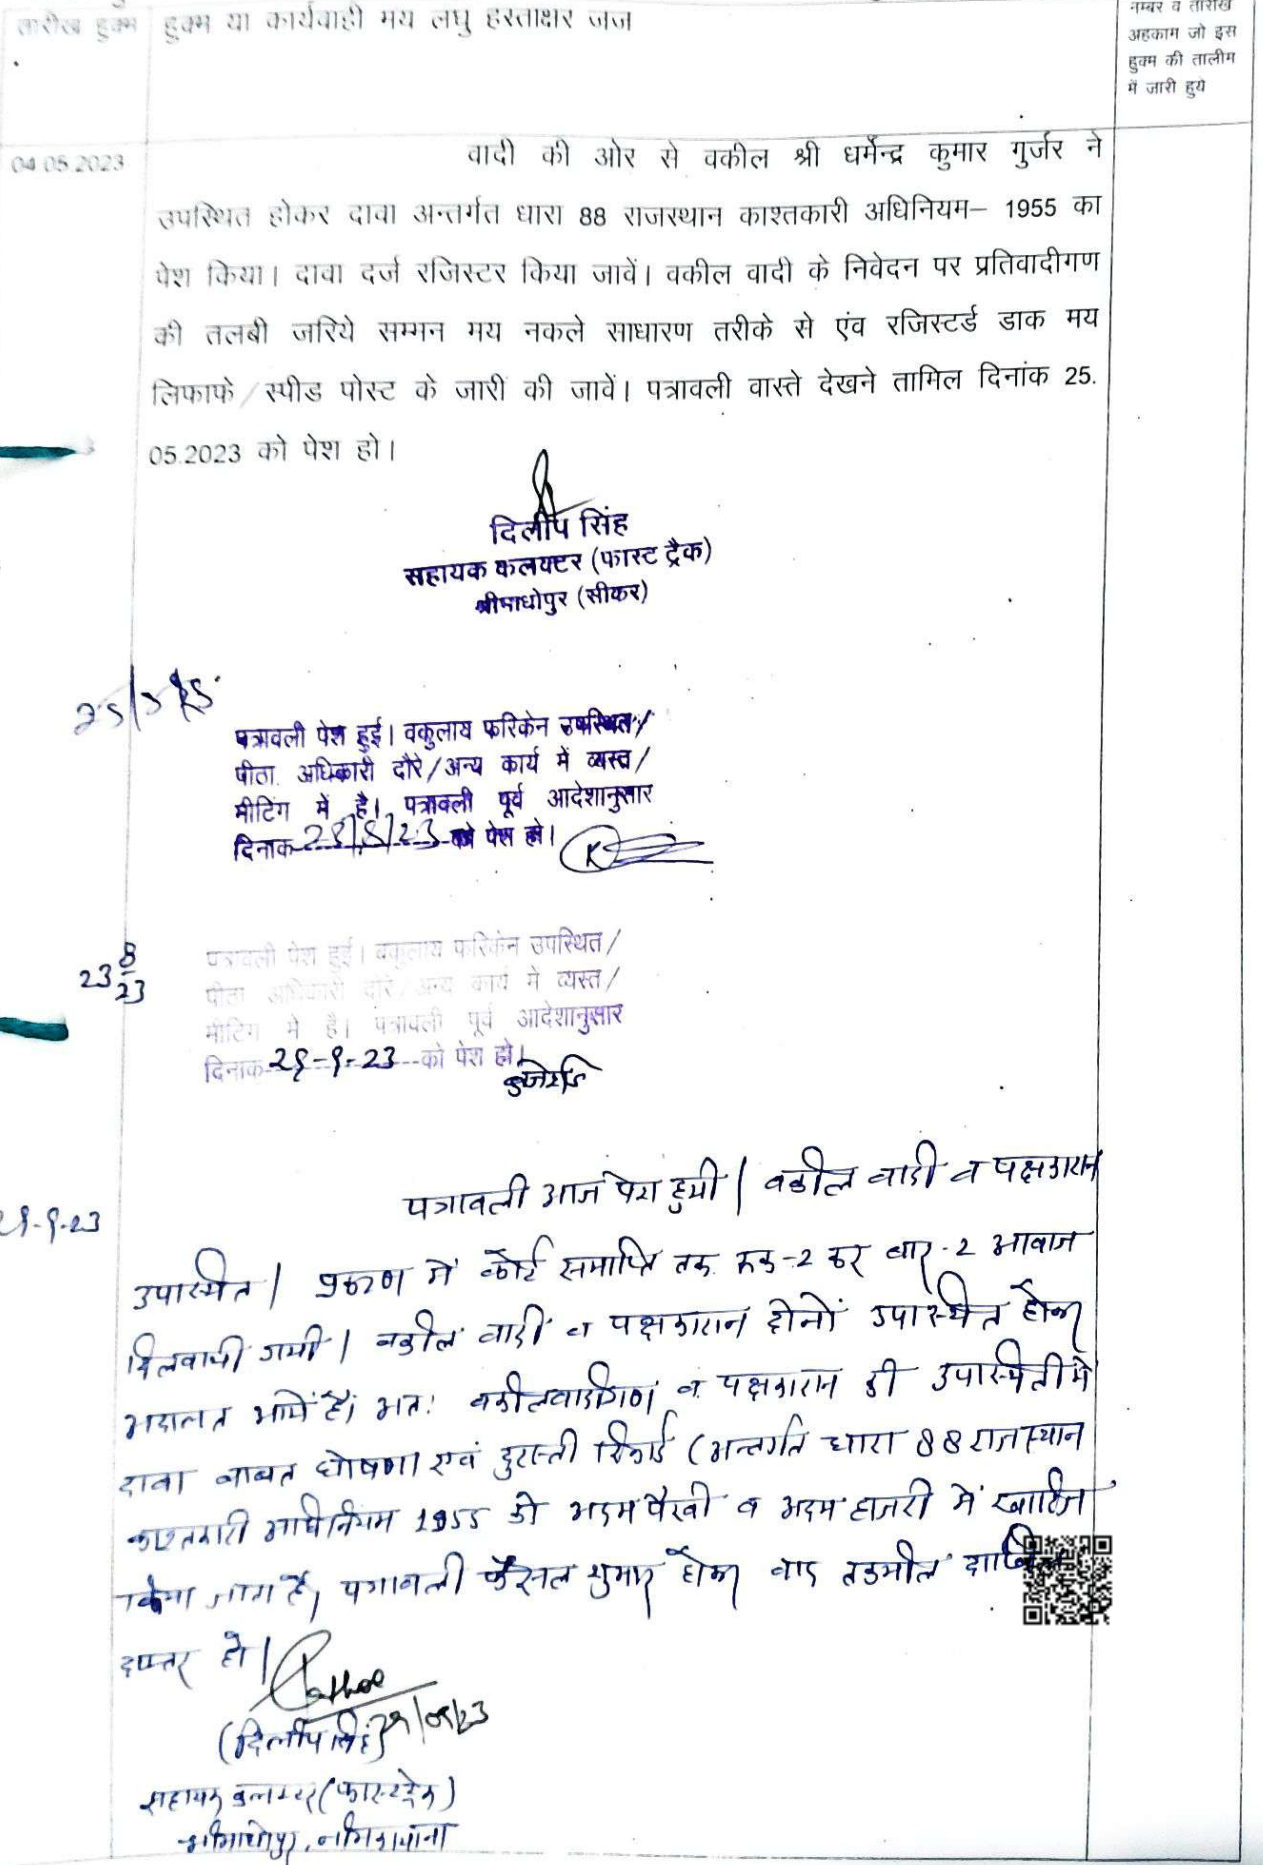 तारीख हुक्म
हुक्म या कार्यवाही मय लघु हस्ताक्षर जज
नम्बर व तारीख
अहकाम जो इस
हुक्म की तालीम
में जारी हुये
04.05.2023
वादी की ओर से वकील श्री धर्मेन्द्र कुमार गुर्जर ने
उपस्थित होकर दावा अन्तर्गत धारा 88 राजस्थान काश्तकारी अधिनियम– 1955 का
पेश किया। दावा दर्ज रजिस्टर किया जावें। वकील वादी के निवेदन पर प्रतिवादीगण
की तलबी जरिये सम्मन मय नकले साधारण तरीके से एंव रजिस्टर्ड डाक मय
लिफाफे/स्पीड पोस्ट के जारी की जावें। पत्रावली वास्ते देखने तामिल दिनांक 25.
05.2023 को पेश हो।
दिलीप सिंह
सहायक कलक्टर (फास्ट ट्रैक)
श्रीमाधोपुर (सीकर)
पत्रावली पेश हुई। वकुलाय फरिकेन उपस्थित/
पीठा. अधिकारी दौरे/अन्य कार्य में व्यस्त/
मीटिंग में है। पत्रावली पूर्व आदेशानुसार
दिनाक 23/8/23 को पेश हो।
23 8/23
पत्रावली पेश हुई। वकुलाय फरिकेन उपस्थित/
पीठा अधिकारी दौरे/अन्य कार्य मे व्यस्त/
मीटिंग मे है। पत्रावली पूर्व आदेशानुसार
दिनाक 29-9-23 को पेश हो।
29-9-23
पत्रावली आज पेश हुयी। वकील वादी व पक्षकारान
उपस्थित। प्रकरण में कोर्ट समाप्ति तक रूक-2 कर बार-2 आवाज
दिलवायी गयी। वकील वादी व पक्षकारान दोनों उपस्थित होकर
अदालत आये है। अतः वकीलवादीगण व पक्षकारान की उपस्थिती में
दावा बाबत घोषणा एवं दुरस्ती रिकार्ड (अन्तर्गत धारा 88 राजस्थान
काश्तकारी अधिनियम 1955 को अदम पैरवी व अदम हाजरी में खारिज
किया जाता है, पत्रावली फैसल शुमार होकर बाद तकमील दाखिल
दफ्तर हो।
(दिलीप सिंह) 29/09/23
सहायक कलक्टर (फास्ट ट्रेक)
श्रीमाधोपुर, नीमकाथाना